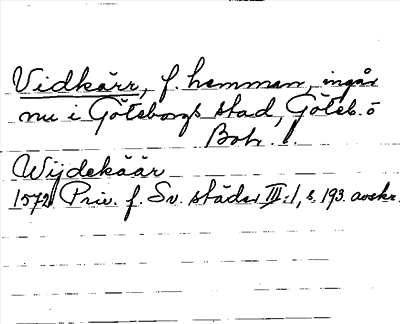 Vidkärr, f. hemman, ingår
nu i Göteborgs stad, Göteb. o
Boh. l.
Wijdekäär
1572 Priv. f. Sv. städer III:1, s. 193. avskr.